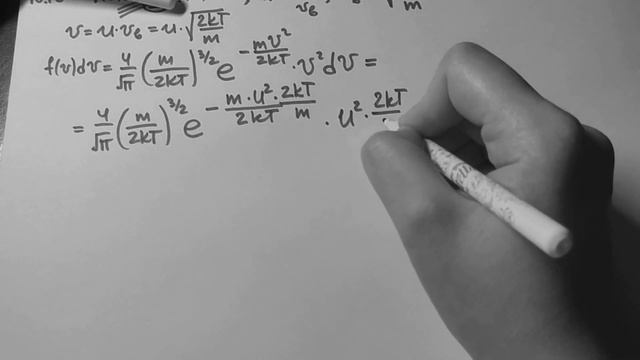 v_в √m
v = u · v_в = u · √(2kT/m)
f(v)dv = 4/√π (m/2kT)^3/2 e^(-mv²/2kT) · v² dv =
= 4/√π (m/2kT)^3/2 e^(-(m · u² · 2kT)/(2kT m)) · u² · 2kT